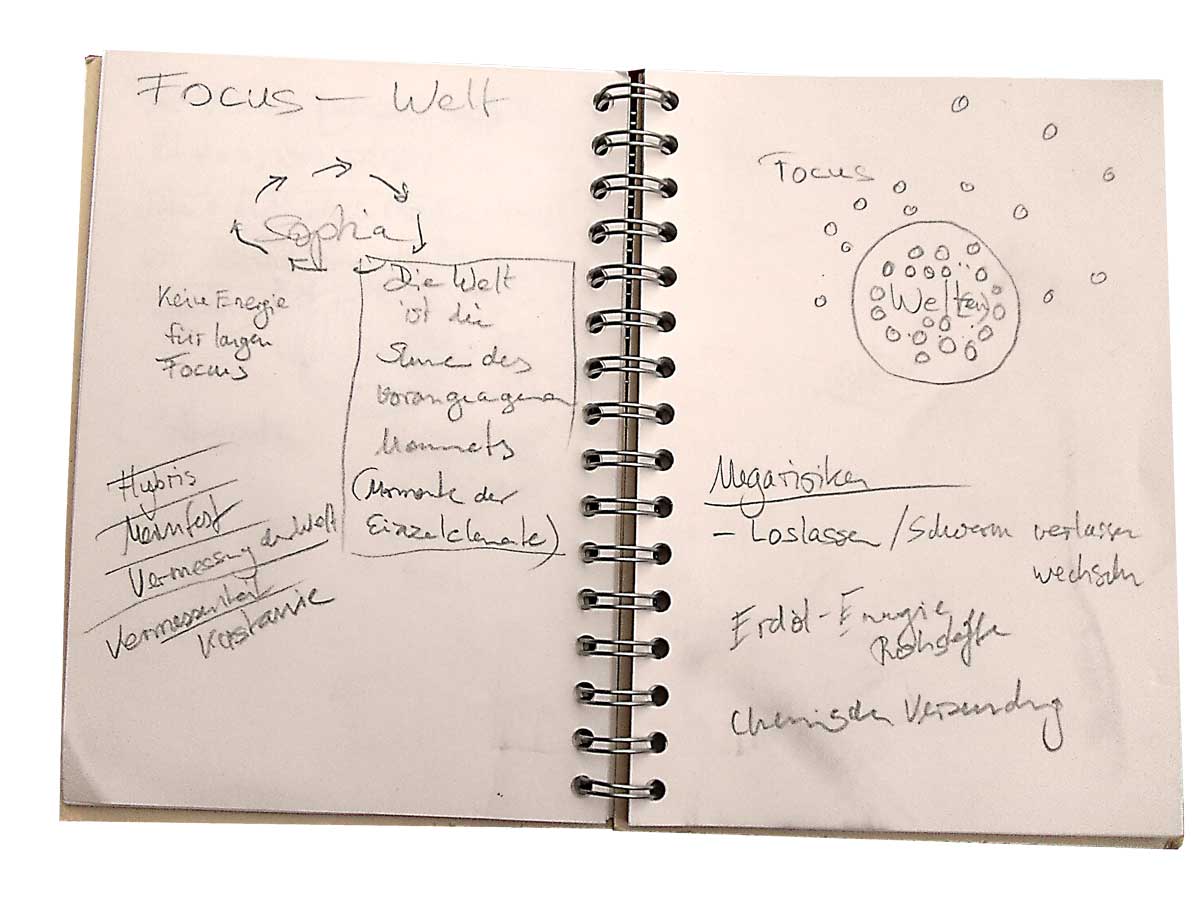 Focus – Welt
Sophia
Keine Energie
für langen
Focus
Die Welt
ist die
Summe des
vorangegangenen
Moments
(Momente der
Einzelelemente)
Hybris
Manifest
Vermessung der Welt
Vermessenheit
Focus
Welt(en)
Megarisiken
– Loslassen / Schwarm verlassen
wechseln
Erdöl-Energie
Rohstoffe
Chemischen